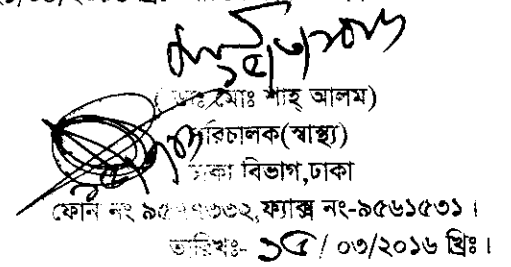 (ডাঃ মোঃ শাহ্ আলম)
পরিচালক(স্বাস্থ্য)
ঢাকা বিভাগ,ঢাকা
ফোন নং ফ্যাক্স নং-৯৫৬১৫৩১।
তারিখঃ- ১৫/ ০৩/২০১৬ খ্রিঃ।